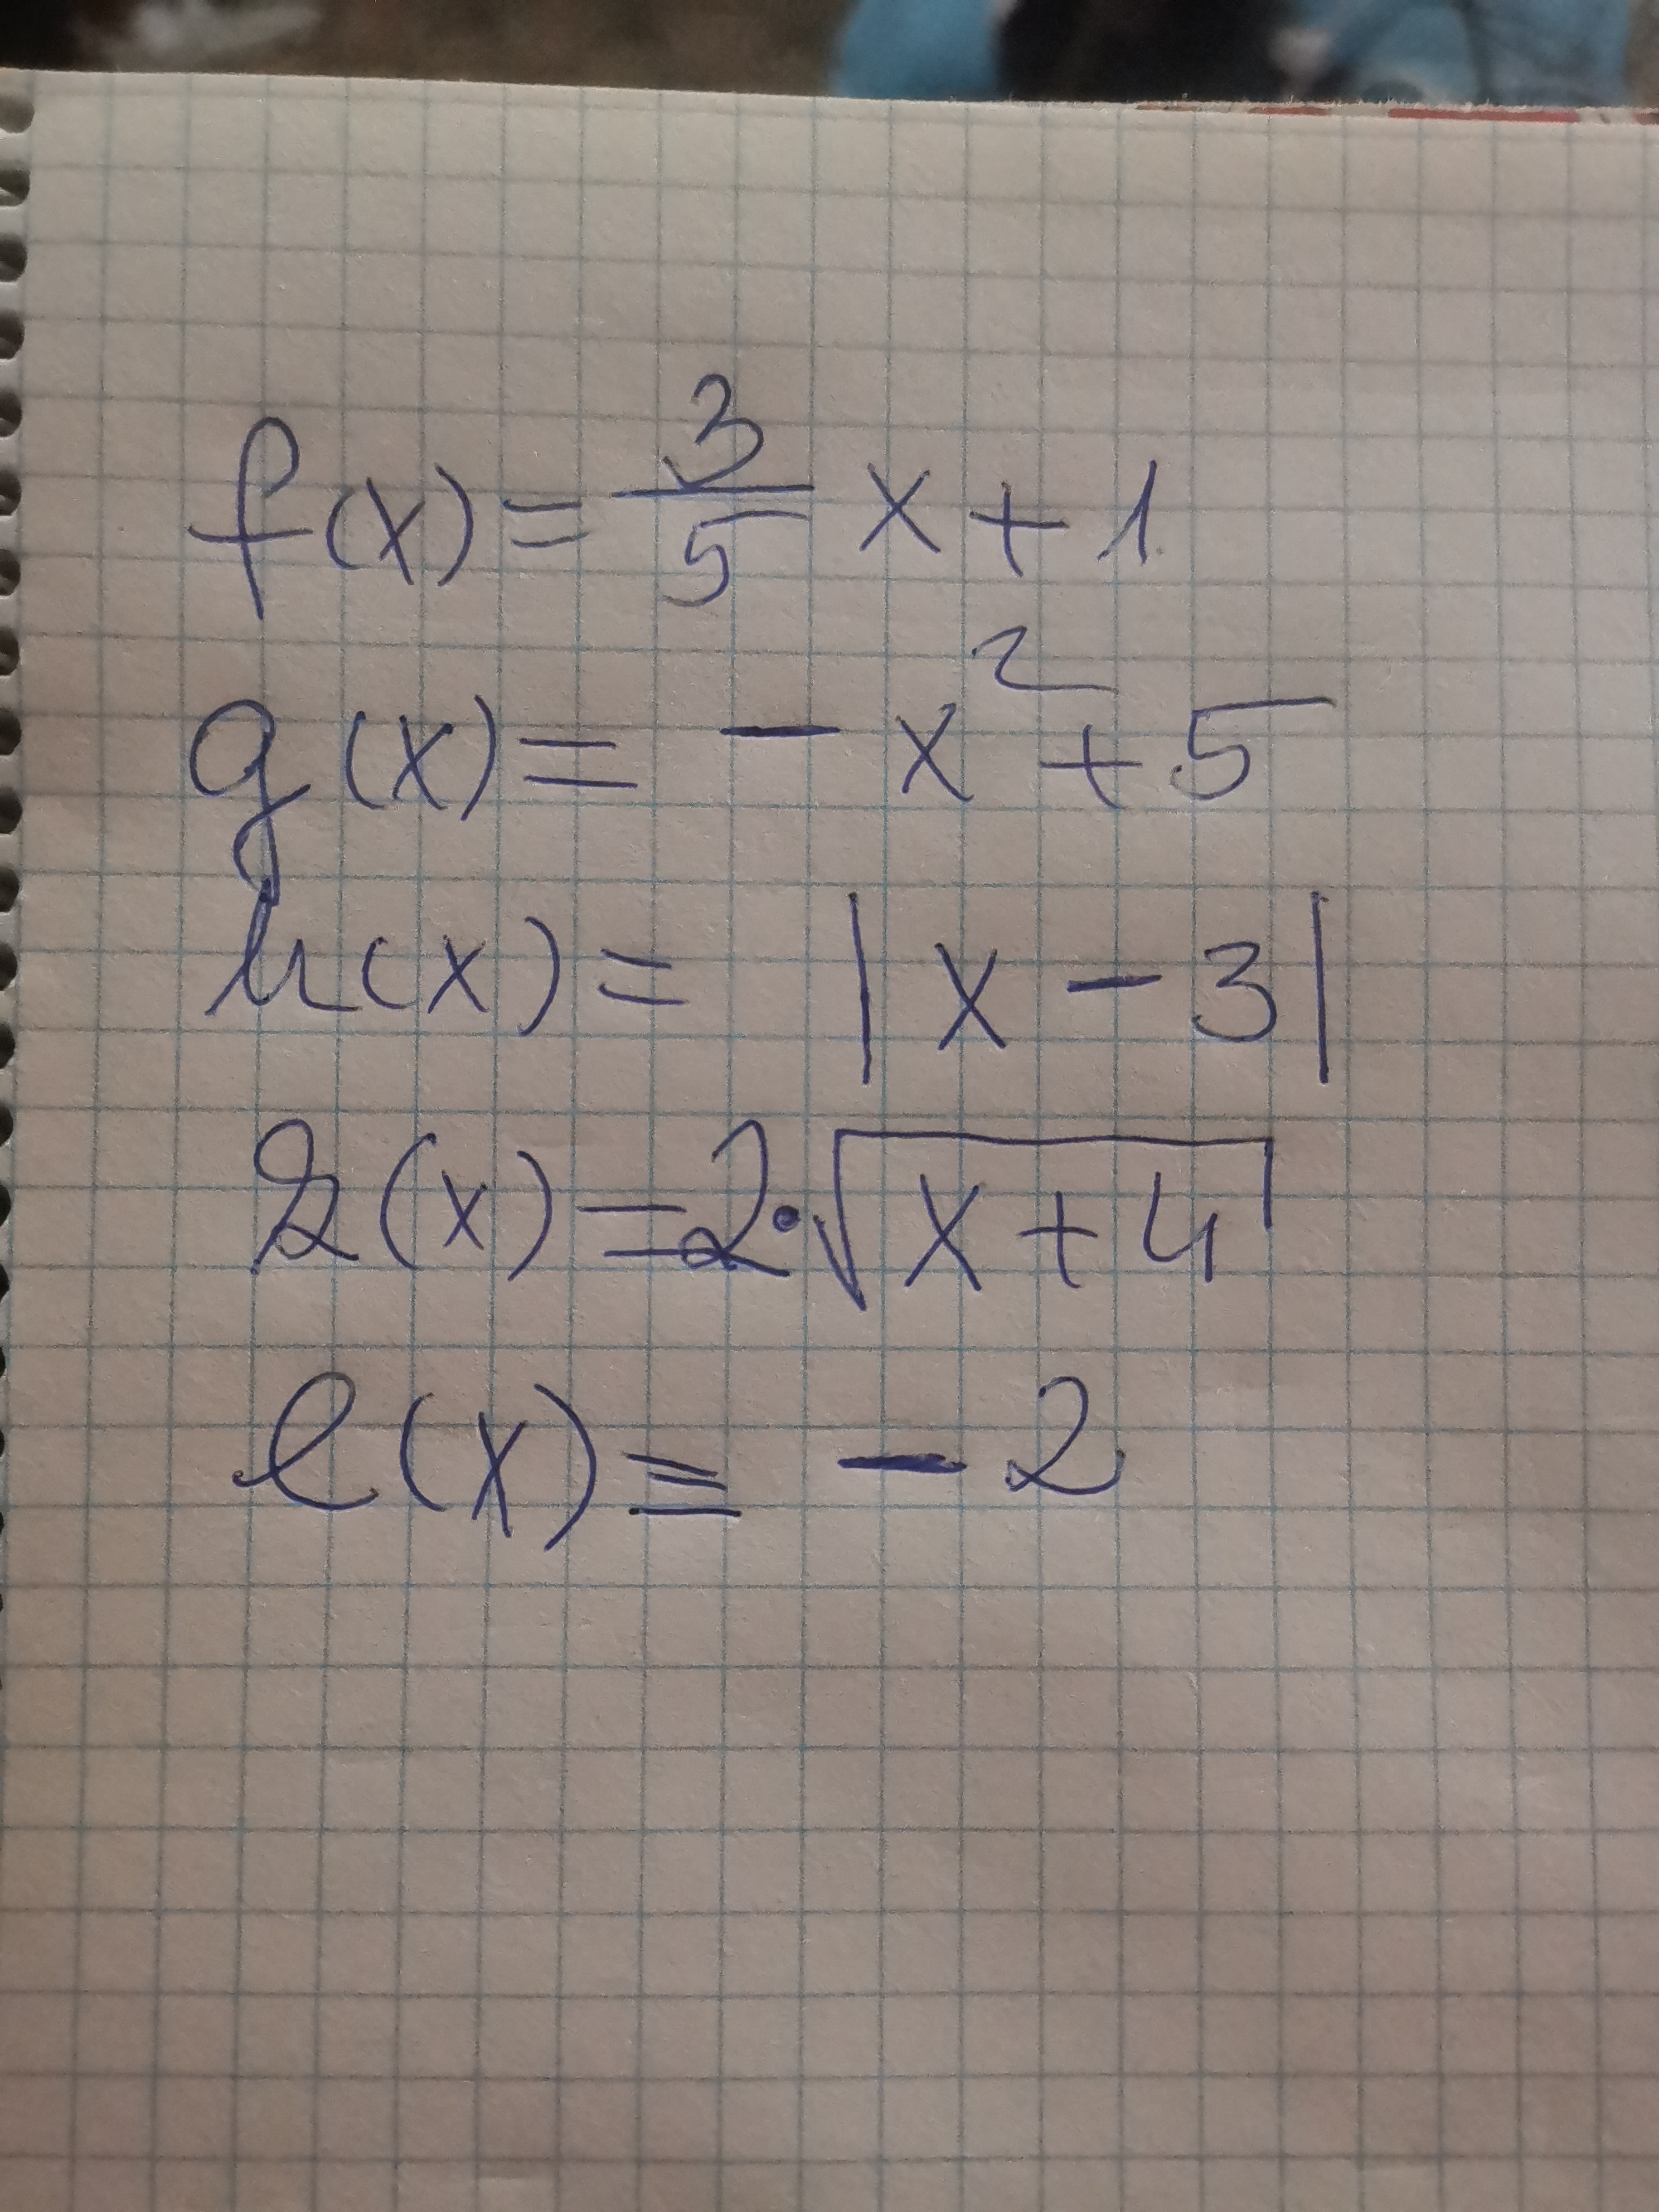 f(x) = 3/5 x + 1
g(x) = - x² + 5
h(x) = |x - 3|
r(x) = 2·√(x + 4)
l(x) = - 2